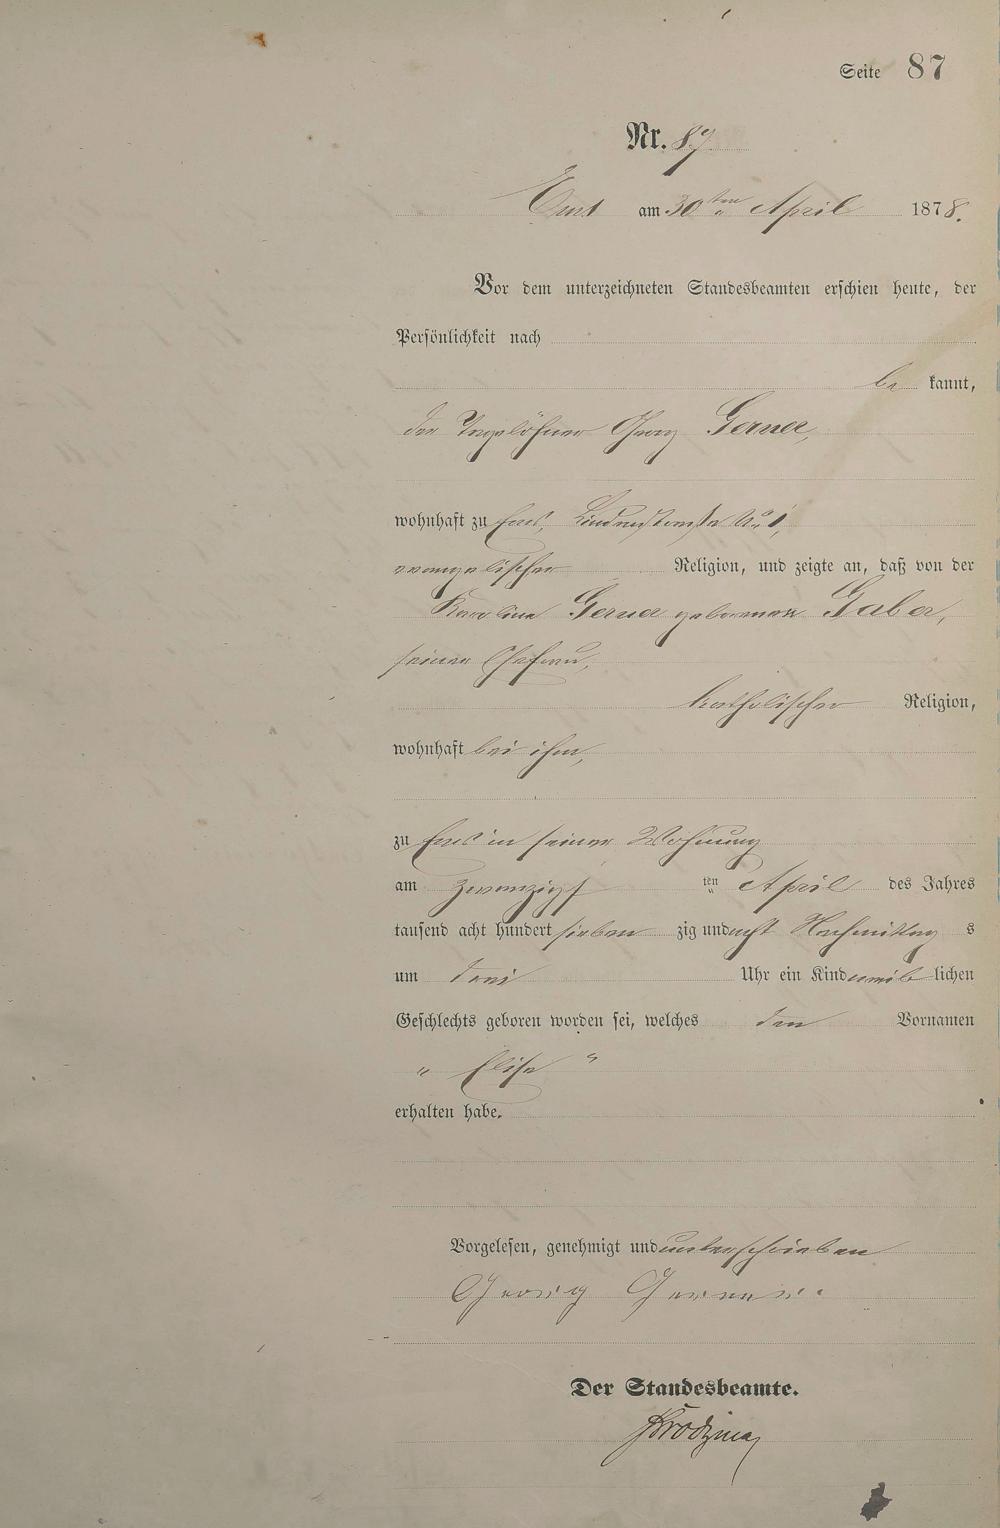 Seite 87
Nr. 87.
Ems am 30ten April 1878.
Vor dem unterzeichneten Standesbeamten erschien heute, der
Persönlichkeit nach
be kannt,
der Tagelöhner Georg Gerner,
wohnhaft zu Ems, Lindenstraße No. 1,
evangelischer Religion, und zeigte an, daß von der
Karoline Gerner geborenen Gaber,
seiner Ehefrau,
katholischer Religion,
wohnhaft bei ihm,
zu Ems in seiner Wohnung
am zwanzigsten April des Jahres
tausend acht hundert sieben zig und acht Nachmittag s
um drei Uhr ein Kind weib lichen
Geschlechts geboren worden sei, welches den Vornamen
„ Elise “
erhalten habe.
Vorgelesen, genehmigt und unterschrieben
Georg Gerner.
Der Standesbeamte.